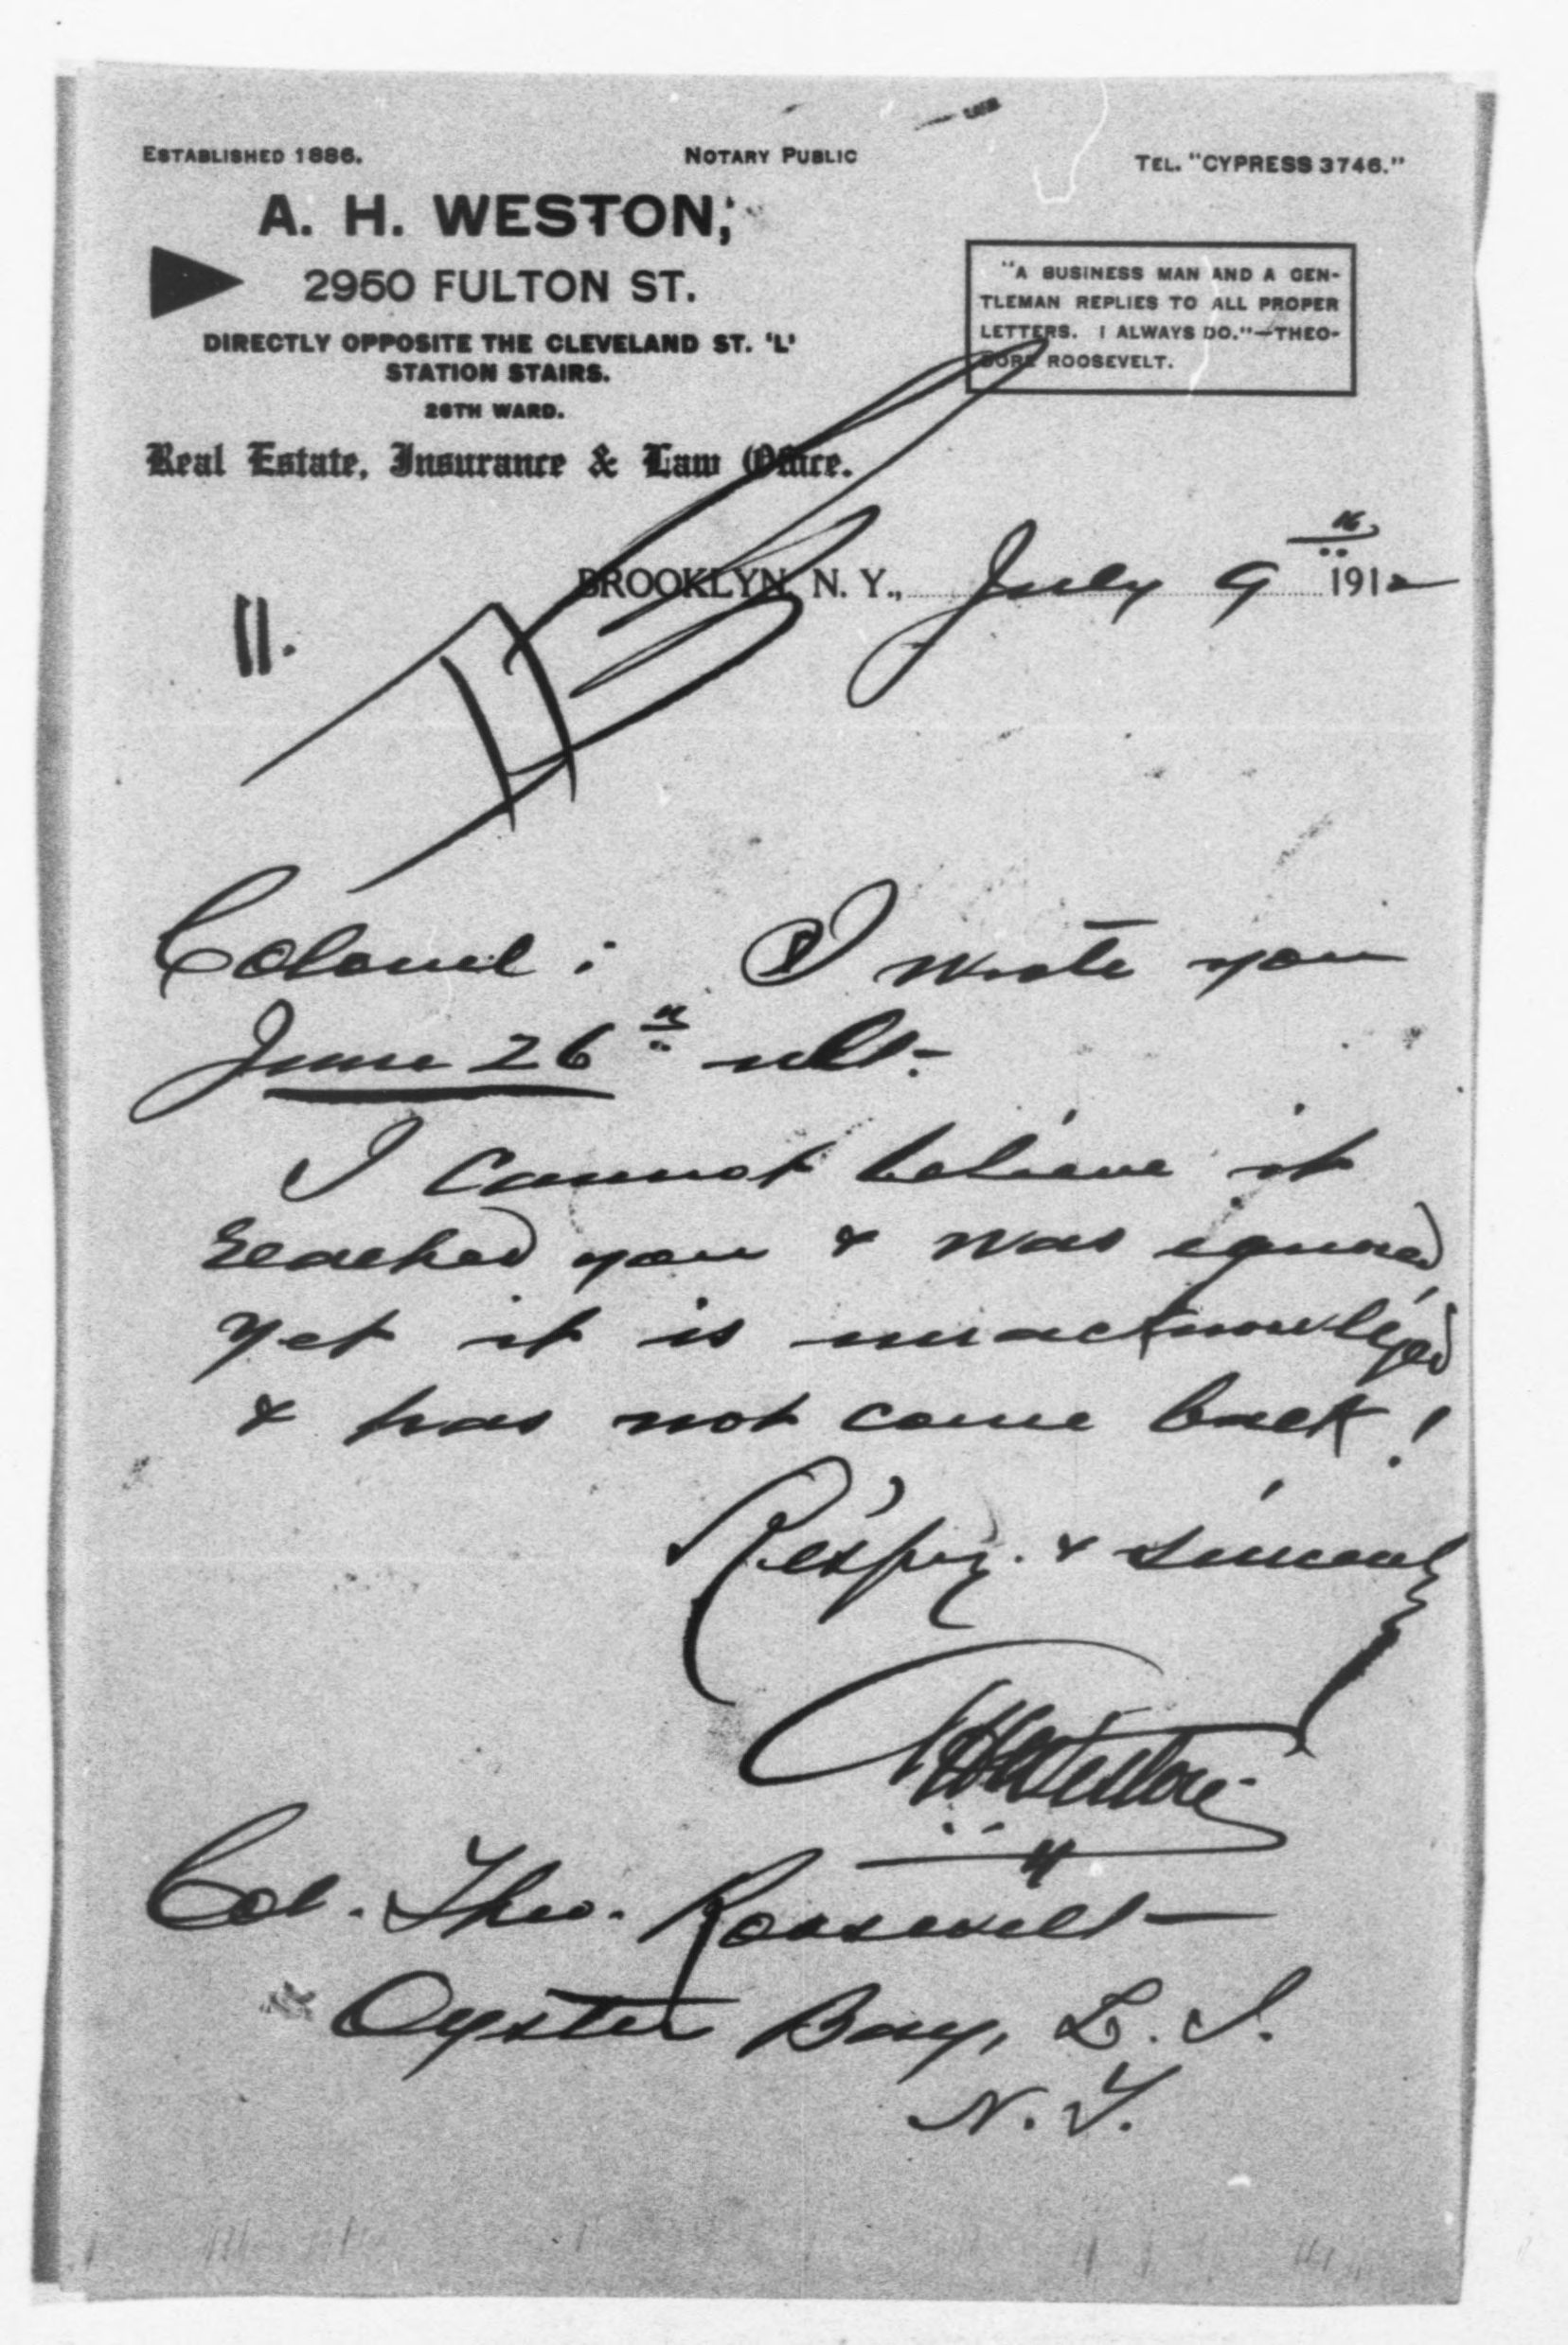 ESTABLISHED 1886.
NOTARY PUBLIC
TEL. "CYPRESS 3746."
A. H. WESTON,
2950 FULTON ST.
DIRECTLY OPPOSITE THE CLEVELAND ST. 'L'
STATION STAIRS.
26TH WARD.
Real Estate, Insurance & Law Office.
"A BUSINESS MAN AND A GEN-
TLEMAN REPLIES TO ALL PROPER
LETTERS. I ALWAYS DO."—THEO-
DORE ROOSEVELT.
BROOKLYN, N. Y., July 9th 1912
11.
Colonel: I wrote you
June 26th ult.
I cannot believe it
reached you & was ignored,
yet it is unacknowledged
& has not come back!
Resp'y. & sincerely
AHWeston
Col. Theo. Roosevelt
Oyster Bay, L. I.
N. Y.